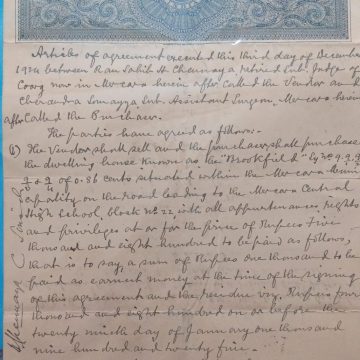 Articles of agreement executed this third day of December
1924 between Rao Sahib H. Chennayya retired Sub. Judge of
Coorg now in Mercara herein after Called the Vendor and
Somayya Sub. Assistant Surgeon Mercara herein
after Called the Purchaser.
The parties have agreed as follows:-
The Vendor shall sell and the purchaser shall purchase
the dwelling house known as the "Brookfield"
of 0.86 cents situated within the Mercara Muni
cipality on the road leading to the Mercara Central
High School, block No 22 with all appurtenances, rights
and privileges at or for the price of Rupees Five
thousand and eight hundred to be paid as follows,
that is to say a sum of Rupees one thousand to be
paid as earnest money at the time of the signing
of this agreement and the residue viz. Rupees four
thousand and eight hundred on or before the
twenty ninth day of January one thousand
nine hundred and twenty five.